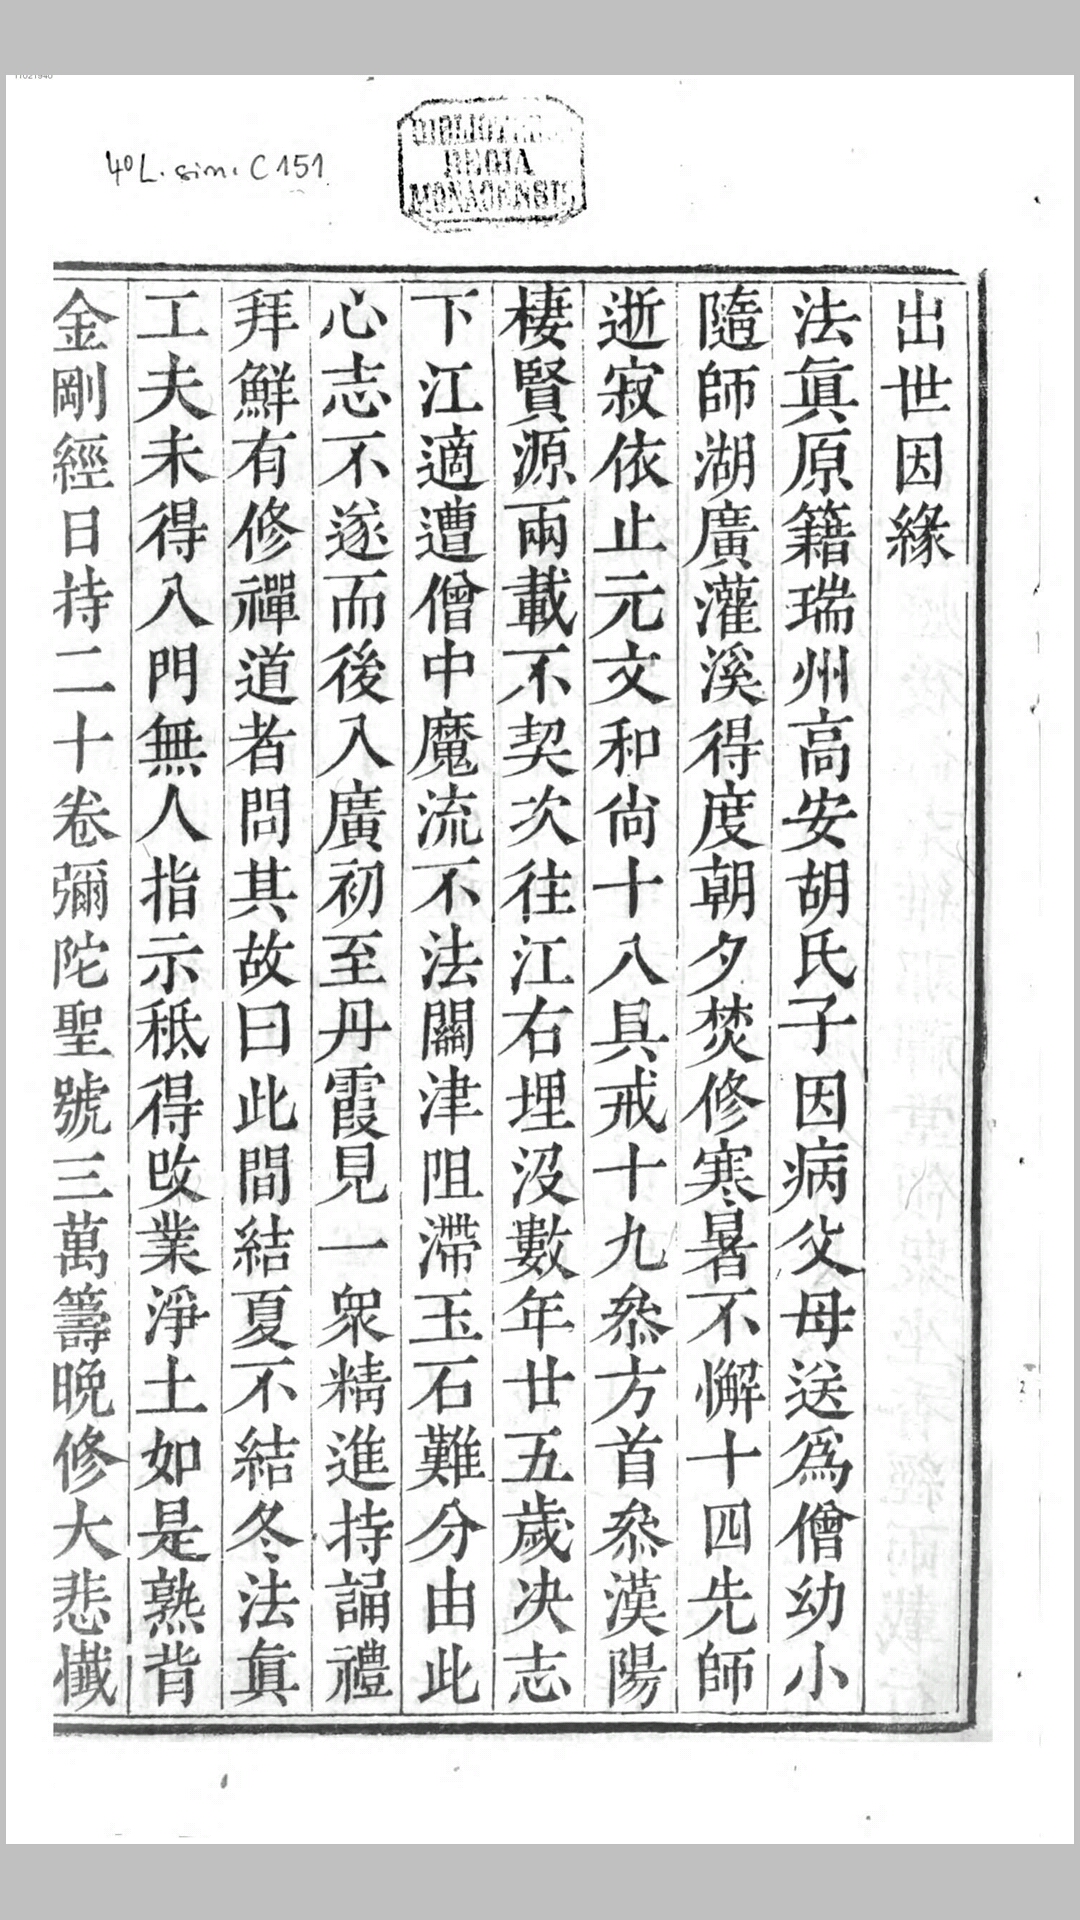 11021940
4° L. sin. C 151
BIBLIOTHECA
REGIA
MONACENSIS
出世因緣
法眞原籍瑞州高安胡氏子因病父母送爲僧幼小
隨師湖廣灌溪得度朝夕焚修寒暑不懈十四先師
逝寂依止元文和尙十八具戒十九叅方首叅漢陽
棲賢源兩載不契次往江右埋沒數年廿五歲决志
下江適遭僧中魔流不法關津阻滯玉石難分由此
心志不遂而後入廣初至丹霞見一衆精進持誦禮
拜鮮有修禪道者問其故曰此間結夏不結冬法眞
工夫未得入門無人指示秪得改業淨土如是熟背
金剛經日持二十卷彌陀聖號三萬籌晚修大悲懺